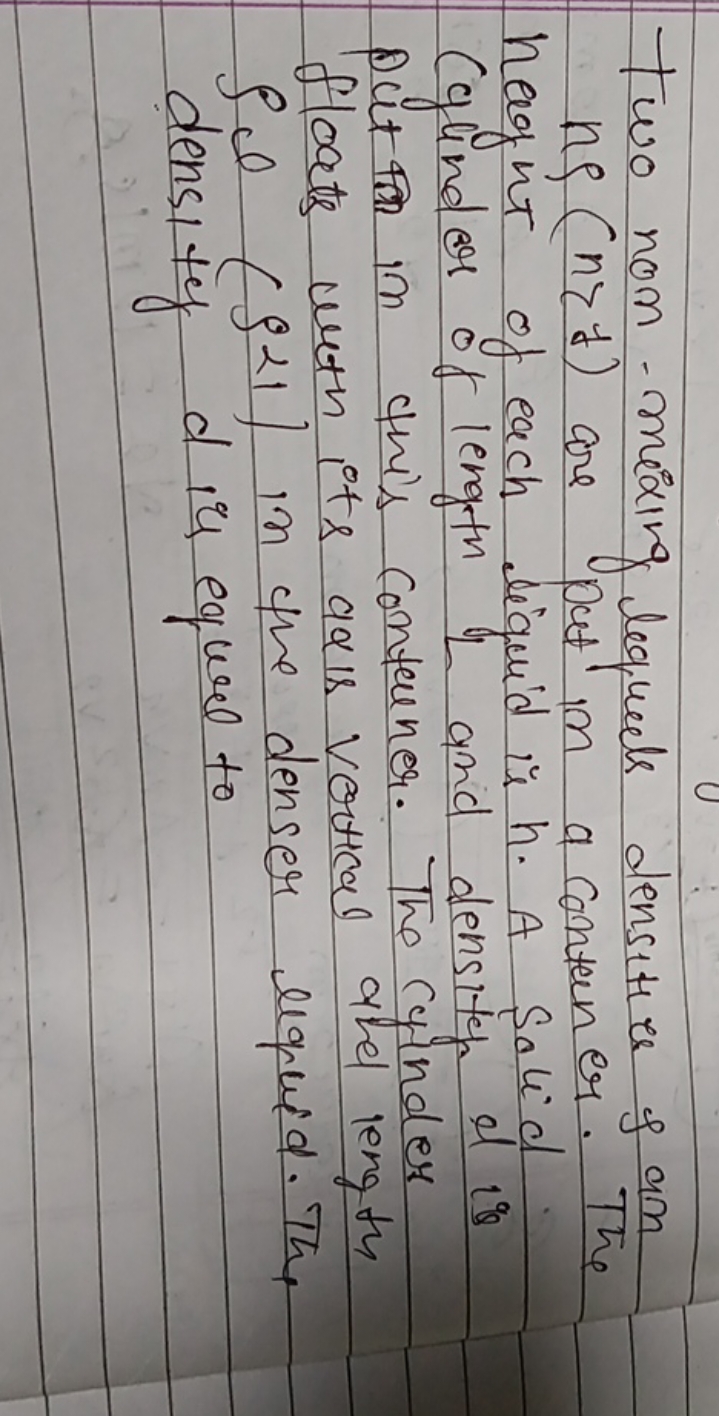 Two non-mixing liqueds densities ρ an
nρ (n>1) are put in a conteiner. The
height of each liquid is h. A Solid
Cylinder of length L and density d is
put in this conteiner. The cylinder
floats with its axis vertical and length
ρL (ρ<1) in the denser liquid. The
density d is equal to